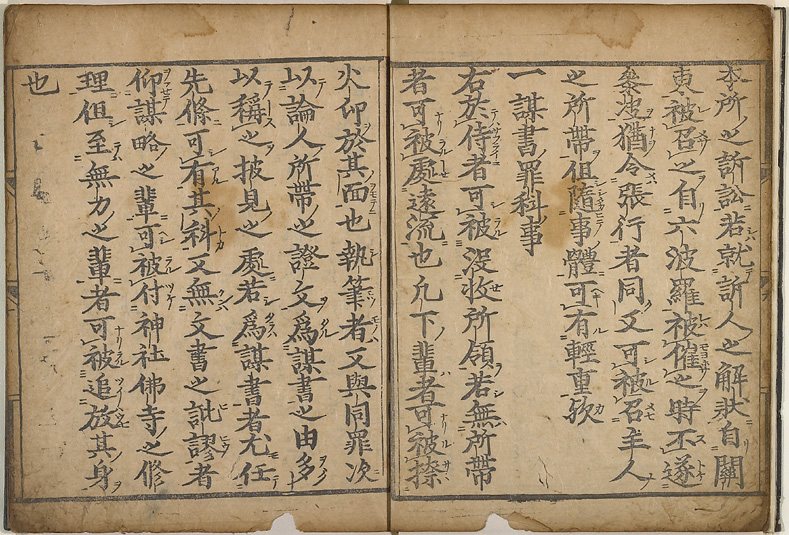 李所之訴訟若就訴人之解狀自關
東被召之自六波羅被催之時不遂
參决猶令張行者同又可被召主人
之所帶但隨事體可有輕重歟
一謀書罪科事
右於侍者可被沒收所領若無所帶
者可被處遠流也凡下輩者可被捺
火印於其面也執筆者又與同罪次
以論人所帶之證文爲謀書之由多
以稱之披見之處若爲謀書者尤任
先條可有其科又無文書之訛謬者
仰謀略之輩可被付神社佛寺之修
理但至無力之輩者可被追放其身
也